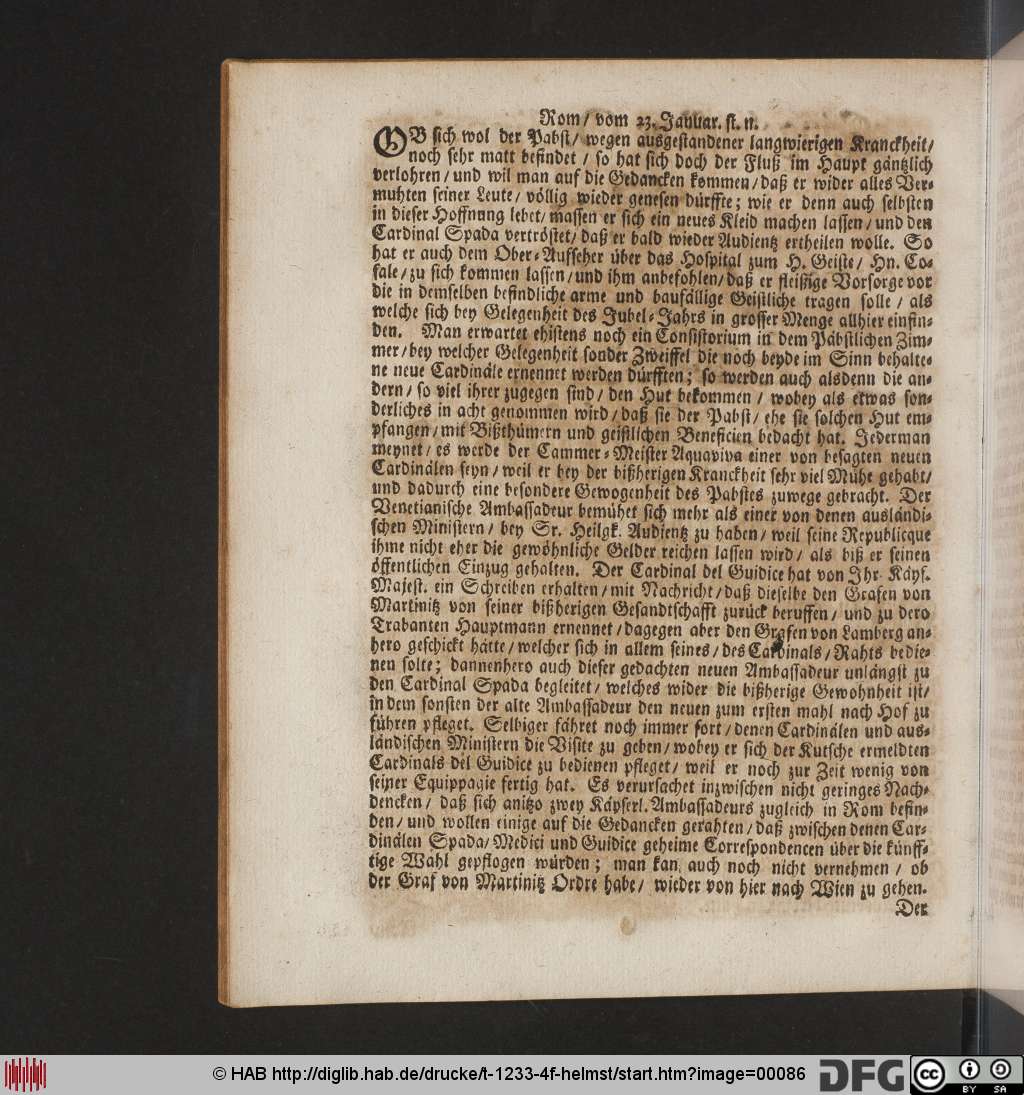 Rom / vom 23. Januar. st. n.
OB sich wol der Pabst / wegen ausgestandener langwierigen Kranckheit /
noch sehr matt befindet / so hat sich doch der Fluß im Haupt gäntzlich
verlohren / und wil man auf die Gedancken kommen / daß er wider alles Ver-
muhten seiner Leute / völlig wieder genesen dürffte; wie er denn auch selbsten
in dieser Hoffnung lebet / massen er sich ein neues Kleid machen lassen / und den
Cardinal Spada vertröstet / daß er bald wieder Audientz ertheilen wolle. So
hat er auch dem Ober-Aufseher über das Hospital zum H. Geiste / Hn. Co-
sale / zu sich kommen lassen / und ihm anbefohlen / daß er fleißige Vorsorge vor
die in demselben befindliche arme und baufällige Geistliche tragen solle / als
welche sich bey Gelegenheit des Jubel-Jahrs in grosser Menge allhier einfin-
den. Man erwartet ehistens noch ein Consistorium in dem Päbstlichen Zim-
mer / bey welcher Gelegenheit sonder Zweiffel die noch beyde im Sinn behalte-
ne neue Cardinäle ernennet werden dürfften; so werden auch alsdenn die an-
dern / so viel ihrer zugegen sind / den Hut bekommen / wobey als etwas son-
derliches in acht genommen wird / daß sie der Pabst / ehe sie solchen Hut em-
pfangen / mit Bißthümern und geistlichen Beneficien bedacht hat. Jederman
meynet / es werde der Cammer-Meister Aquaviva einer von besagten neuen
Cardinälen seyn / weil er bey der bißherigen Kranckheit sehr viel Mühe gehabt /
und dadurch eine besondere Gewogenheit des Pabstes zuwege gebracht. Der
Venetianische Ambassadeur bemühet sich mehr als einer von denen ausländi-
schen Ministern / bey Sr. Heilgk. Audientz zu haben / weil seine Republicque
ihme nicht eher die gewöhnliche Gelder reichen lassen wird / als biß er seinen
öffentlichen Einzug gehalten. Der Cardinal del Guidice hat von Ihr. Käys.
Majest. ein Schreiben erhalten / mit Nachricht / daß dieselbe den Grafen von
Martinitz von seiner bißherigen Gesandtschafft zurück beruffen / und zu dero
Trabanten Hauptmann ernennet / dagegen aber den Grafen von Lamberg an-
hero geschickt hätte / welcher sich in allem seines / des Cardinals / Rahts bedie-
nen solte; dannenhero auch dieser gedachten neuen Ambassadeur unlängst zu
den Cardinal Spada begleitet / welches wider die bißherige Gewohnheit ist /
in dem sonsten der alte Ambassadeur den neuen zum ersten mahl nach Hof zu
führen pfleget. Selbiger fähret noch immer fort / denen Cardinälen und aus-
ländischen Ministern die Visite zu geben / wobey er sich der Kutsche ermeldten
Cardinals del Guidice zu bedienen pfleget / weil er noch zur Zeit wenig von
seiner Equippagie fertig hat. Es verursachet inzwischen nicht geringes Nach-
dencken / daß sich anitzo zwey Käyserl. Ambassadeurs zugleich in Rom befin-
den / und wollen einige auf die Gedancken gerahten / daß zwischen denen Car-
dinälen Spada / Medici und Guidice geheime Correspondencen über die künff-
tige Wahl gepflogen würden; man kan auch noch nicht vernehmen / ob
der Graf von Martinitz Ordre habe / wieder von hier nach Wien zu gehen.
Der
© HAB http://diglib.hab.de/drucke/t-1233-4f-helmst/start.htm?image=00086
DFG
cc BY SA